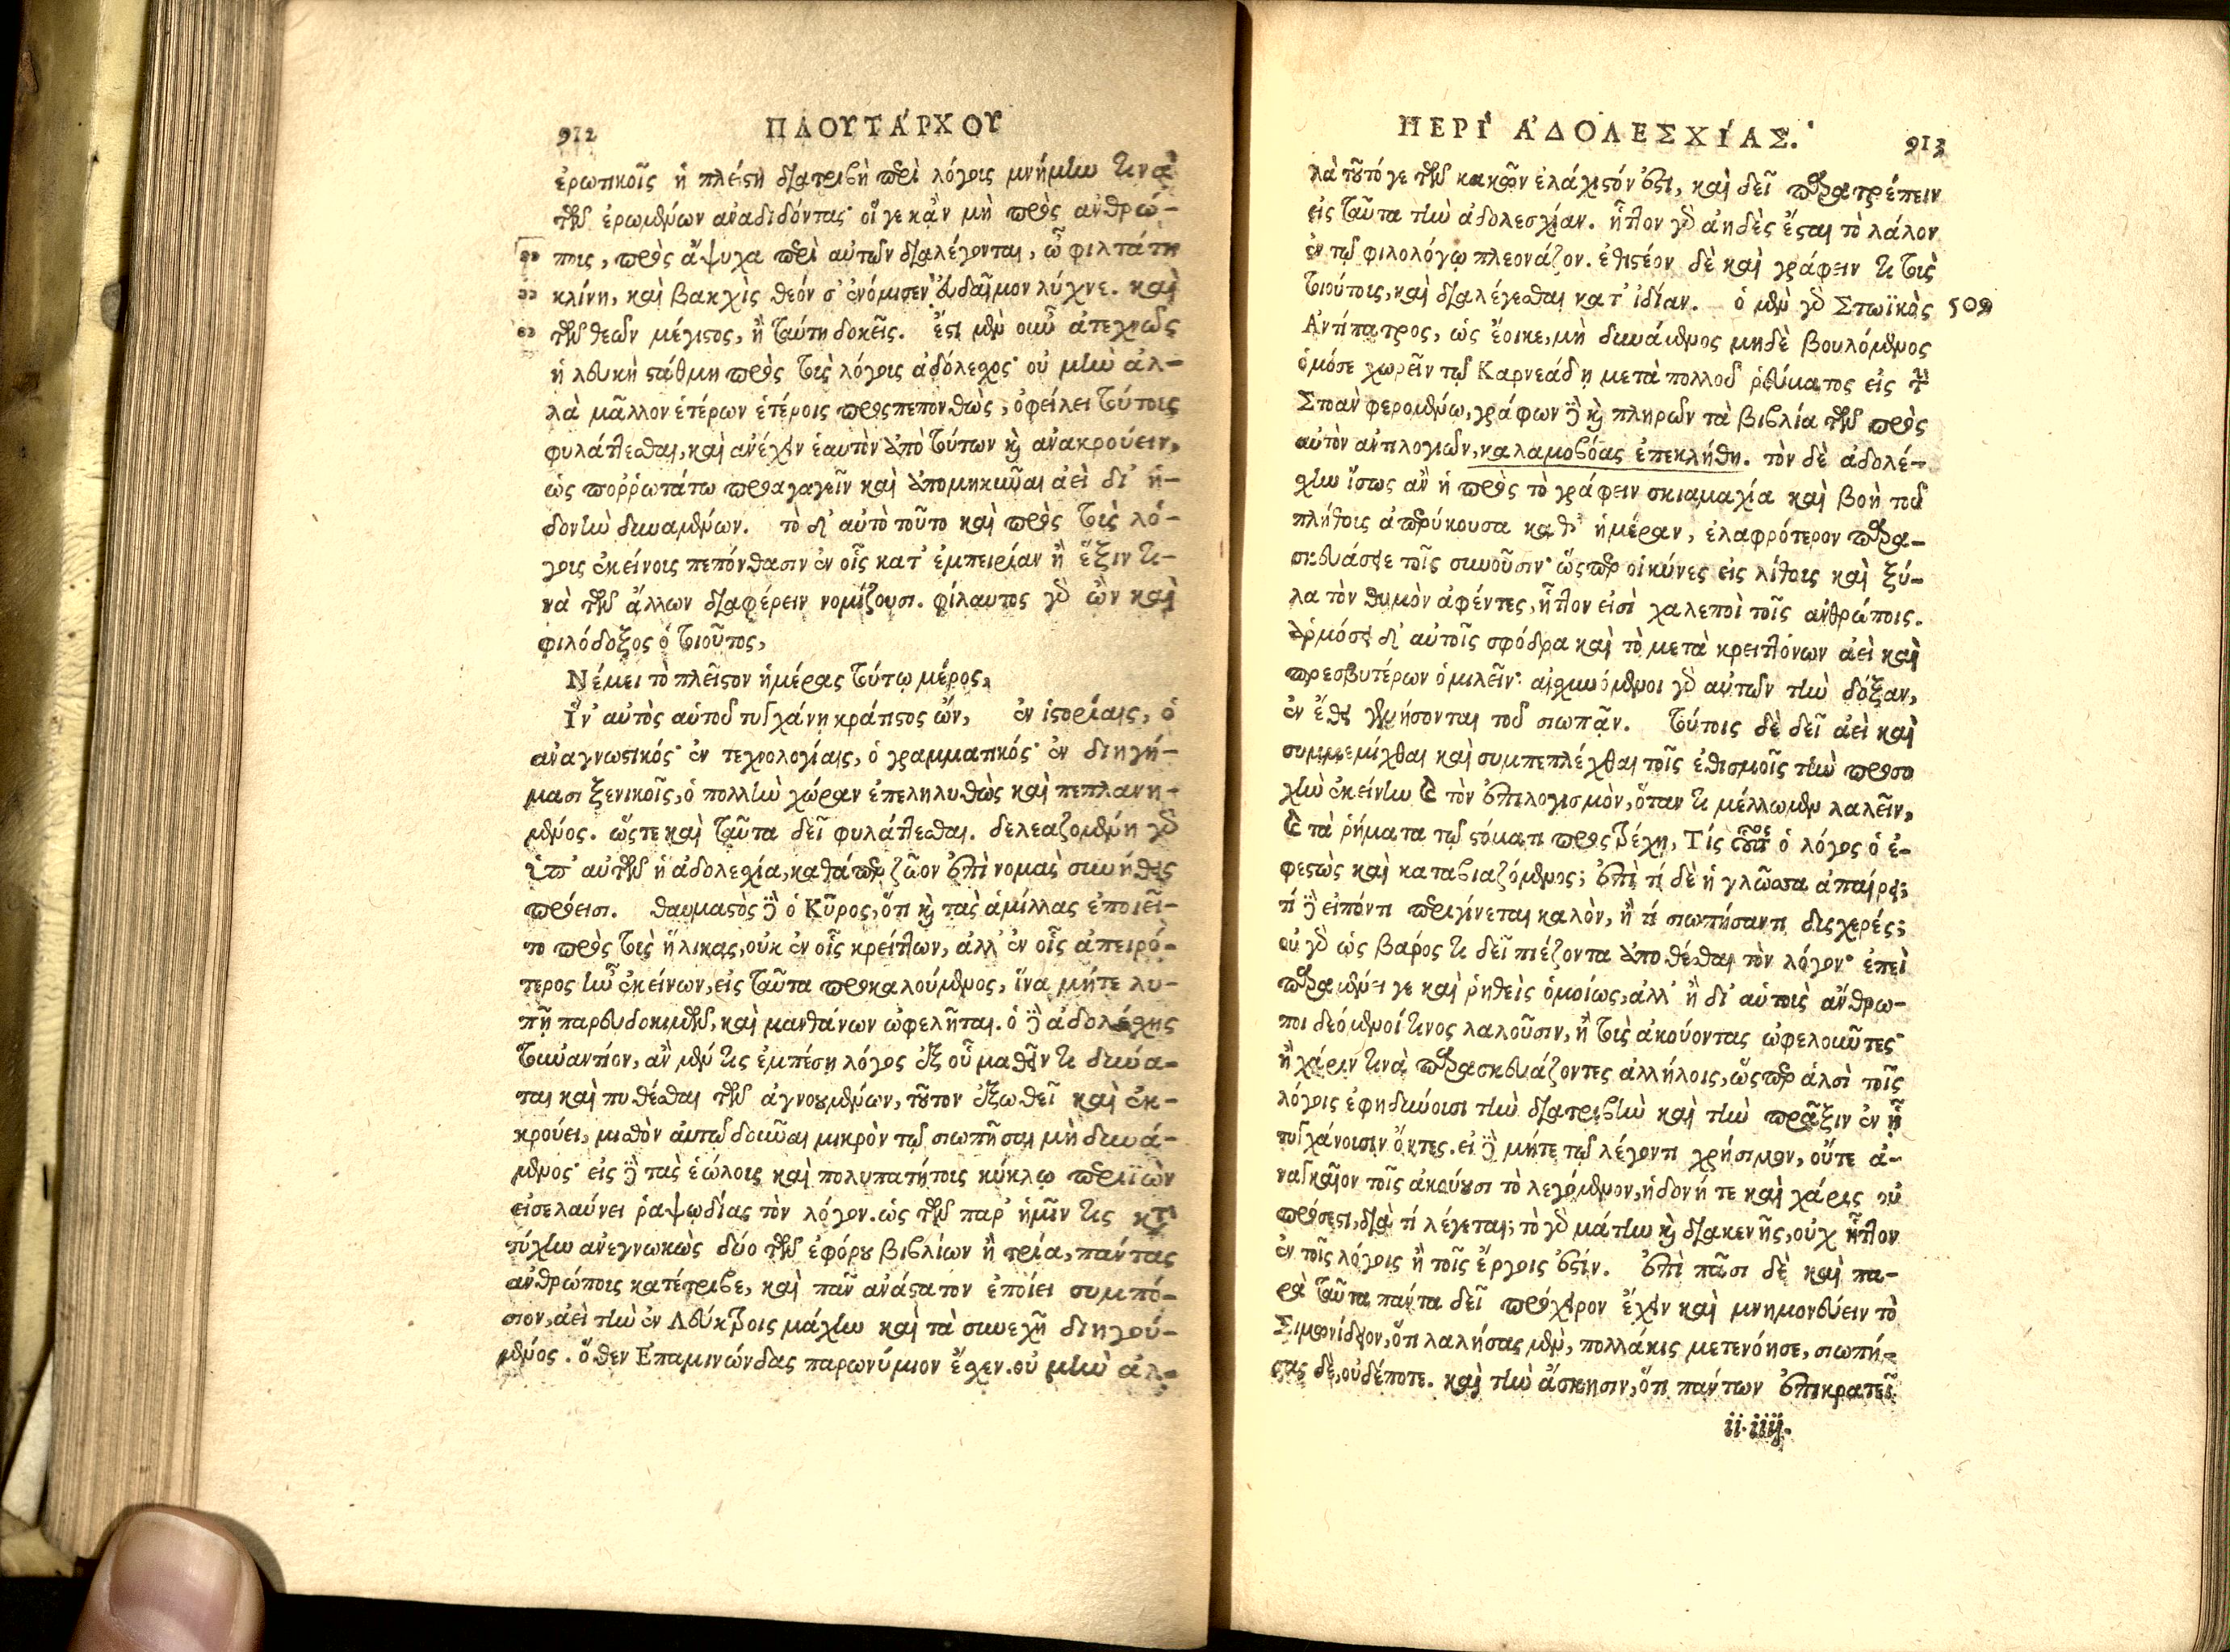 912 ΠΛΟΥΤΑ'ΡΧΟΥ
ἐρωτικοῖς ἡ πλείστη διατριβὴ περὶ λόγοις μνήμην τινὰ
τῶν ἐρωμένων ἀναδιδόντας· οἵ γε κἂν μὴ πρὸς ἀνθρώ-
ποις, πρὸς ἄψυχα περὶ αὐτῶν διαλέγονται, ὦ φιλτάτη
κλίνη, καὶ βακχὶς θεόν σ' ἐνόμισεν εὔδαιμον λύχνε. καὶ
τῶν θεῶν μέγιστος, ἢ ταύτῃ δοκεῖς. ἔστι μὲν οὖν ἀτεχνῶς
ἡ λευκὴ στάθμη πρὸς τοὺς λόγοις ἀδόλεσχος· οὐ μὴν ἀλ-
λὰ μᾶλλον ἑτέρων ἑτέροις προσπεπονθὼς, ὀφείλει τούτοις
φυλάττεσθαι, καὶ ἀνέχειν ἑαυτὸν ἀπὸ τούτων καὶ ἀνακρούειν,
ὡς ποῤῥωτάτω προαγαγεῖν καὶ ἀπομηκῦναι ἀεὶ δι' ἡ-
δονὴν δυναμένων. τὸ δ' αὐτὸ τοῦτο καὶ πρὸς τοὺς λό-
γοις ἐκείνοις πεπόνθασιν ἐν οἷς κατ' ἐμπειρίαν ἢ ἕξιν τι-
νὰ τῶν ἄλλων διαφέρειν νομίζουσι. φίλαυτος γὰρ ὢν καὶ
φιλόδοξος ὁ τοιοῦτος,
Νέμει τὸ πλεῖστον ἡμέρας τούτῳ μέρος,
Ἵν' αὐτὸς αὑτοῦ τυγχάνῃ κράτιστος ὤν, ἐν ἱστορίαις, ὁ
ἀναγνωστικός· ἐν τεχνολογίαις, ὁ γραμματικός· ἐν διηγή-
μασι ξενικοῖς, ὁ πολλὴν χώραν ἐπεληλυθὼς καὶ πεπλανη-
μένος. ὥστε καὶ ταῦτα δεῖ φυλάττεσθαι. δελεαζομένη γὰρ
ὑπ' αὐτῶν ἡ ἀδολεσχία, καθάπερ ζῶον ἐπὶ νομὰς συνήθεις
πρόεισι. θαυμαστὸς δὲ ὁ Κῦρος, ὅτι καὶ τὰς ἁμίλλας ἐποιεῖ-
το πρὸς τοὺς ἥλικας, οὐκ ἐν οἷς κρείττων, ἀλλ' ἐν οἷς ἀπειρό-
τερος ἦν ἐκείνων, εἰς ταῦτα προκαλούμενος, ἵνα μήτε λυ-
πῇ παρευδοκιμῶν, καὶ μανθάνων ὠφελῆται. ὁ δὲ ἀδολέσχης
τοὐναντίον, ἂν μέν τις ἐμπέσῃ λόγος ἐξ οὗ μαθεῖν τι δύνα-
ται καὶ πυθέσθαι τῶν ἀγνοουμένων, τοῦτον ἐξωθεῖ καὶ ἐκ-
κρούει, μισθὸν αὐτῷ δοῦναι μικρὸν τῷ σιωπῆσαι μὴ δυνά-
μενος· εἰς δὲ τὰς ἑώλοις καὶ πολυπατήτοις κύκλῳ περιϊὼν
εἰσελαύνει ῥαψῳδίας τὸν λόγον. ὡς τῶν παρ' ἡμῖν τις κατὰ
τύχην ἀνεγνωκὼς δύο τῶν ἐφόρου βιβλίων ἢ τρία, πάντας
ἀνθρώποις κατέτριβε, καὶ πᾶν ἀνάστατον ἐποίει συμπό-
σιον, ἀεὶ τὴν ἐν Λεύκτροις μάχην καὶ τὰ συνεχῆ διηγού-
μενος. ὅθεν Ἐπαμινώνδας παρωνύμιον ἔσχεν. οὐ μὴν ἀλ-
ΠΕΡΙ' Α'ΔΟΛΕΣΧΙ'ΑΣ. 913
λὰ τοῦτό γε τῶν κακῶν ἐλάχιστόν ἐστι, καὶ δεῖ παρατρέπειν
εἰς ταῦτα τὴν ἀδολεσχίαν. ἧττον γὰρ ἀηδὲς ἔσται τὸ λάλον
ἐν τῷ φιλολόγῳ πλεονάζον. ἐθιστέον δὲ καὶ γράφειν τι τοὺς
τοιούτοις, καὶ διαλέγεσθαι κατ' ἰδίαν. ὁ μὲν γὰρ Στωϊκὸς 509
Ἀντίπατρος, ὡς ἔοικε, μὴ δυνάμενος μηδὲ βουλόμενος
ὁμόσε χωρεῖν τῷ Καρνεάδῃ μετὰ πολλοῦ ῥεύματος εἰς τὴν
Στοὰν φερομένῳ, γράφων δὲ καὶ πληρῶν τὰ βιβλία τῶν πρὸς
αὐτὸν ἀντιλογιῶν, καλαμοβόας ἐπεκλήθη. τὸν δὲ ἀδολέ-
σχην ἴσως ἂν ἡ πρὸς τὸ γράφειν σκιαμαχία καὶ βοὴ τοῦ
πλήθοις ἀπερύκουσα καθ' ἡμέραν, ἐλαφρότερον παρα-
σκευάσειε τοῖς συνοῦσιν· ὥσπερ οἱ κύνες εἰς λίθοις καὶ ξύ-
λα τὸν θυμὸν ἀφέντες, ἧττον εἰσὶ χαλεποὶ τοῖς ἀνθρώποις.
ἁρμόσει δ' αὐτοῖς σφόδρα καὶ τὸ μετὰ κρειττόνων ἀεὶ καὶ
πρεσβυτέρων ὁμιλεῖν· αἰσχυνόμενοι γὰρ αὐτῶν τὴν δόξαν,
ἐν ἔθει γενήσονται τοῦ σιωπᾶν. τούτοις δὲ δεῖ ἀεὶ καὶ
συμμεμίχθαι καὶ συμπεπλέχθαι τοῖς ἐθισμοῖς τὴν προσο
χὴν ἐκείνην καὶ τὸν ἐπιλογισμὸν, ὅταν τι μέλλωμεν λαλεῖν,
καὶ τὰ ῥήματα τῷ στόματι προστρέχῃ, Τίς οὗτος ὁ λόγος ὁ ἐ-
φεστὼς καὶ καταβιαζόμενος; ἐπὶ τί δὲ ἡ γλῶσσα ἀπαίρει;
τί δὲ εἰπόντι περιγίνεται καλὸν, ἢ τί σιωπήσαντι δυσχερές;
οὐ γὰρ ὡς βάρος τι δεῖ πιέζοντα ἀποθέσθαι τὸν λόγον· ἐπεὶ
παραμένει γε καὶ ῥηθεὶς ὁμοίως, ἀλλ' ἢ δι' αὑτοὺς ἄνθρω-
ποι δεόμενοί τινος λαλοῦσιν, ἢ τοὺς ἀκούοντας ὠφελοῦντες·
ἢ χάριν τινὰ παρασκευάζοντες ἀλλήλοις, ὥσπερ ἁλσὶ τοῖς
λόγοις ἐφηδύνοισι τὴν διατριβὴν καὶ τὴν πρᾶξιν ἐν ᾗ
τυγχάνοισιν ὄντες. εἰ δὲ μήτε τῷ λέγοντι χρήσιμον, οὔτε ἀ-
ναγκαῖον τοῖς ἀκούουσι τὸ λεγόμενον, ἡδονή τε καὶ χάρις οὐ
πρόσεστι, διὰ τί λέγεται; τὸ γὰρ μάτην καὶ διακενῆς, οὐχ ἧττον
ἐν τοῖς λόγοις ἢ τοῖς ἔργοις ἐστίν. ἐπὶ πᾶσι δὲ καὶ πα-
ρὰ ταῦτα πάντα δεῖ πρόχειρον ἔχειν καὶ μνημονεύειν τὸ
Σιμωνίδειον, ὅτι λαλήσας μὲν, πολλάκις μετενόησε, σιωπή-
σας δὲ, οὐδέποτε. καὶ τὴν ἄσκησιν, ὅτι πάντων ἐπικρατεῖ
ii.iiij.